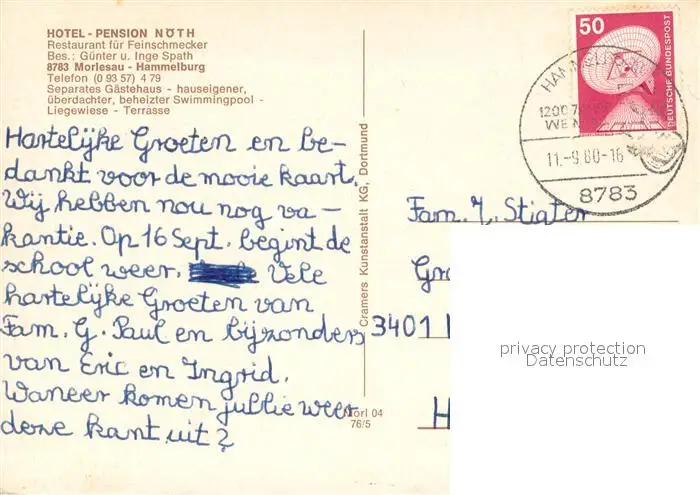 HOTEL - PENSION NÖTH
Restaurant für Feinschmecker
Bes.: Günter u. Inge Spath
8783 Morlesau - Hammelburg
Telefon (0 93 57) 4 79
Separates Gästehaus - hauseigener,
überdachter, beheizter Swimmingpool -
Liegewiese - Terrasse
Hartelijke Groeten en be-
dankt voor de mooie kaart.
Wij hebben nou nog va-
kantie. Op 16 Sept. begint de
school weer. Vele
hartelijke Groeten van
Fam. G. Paul en bijzonders
van Eric en Ingrid.
Waneer komen jullie weer
deze kant uit?
Cramers Kunstanstalt KG, Dortmund
Morl 04
76/5
50
DEUTSCHE BUNDESPOST
11.-9.80-16
8783
Fam. J. Stigter
Gr
3401
H
privacy protection
Datenschutz